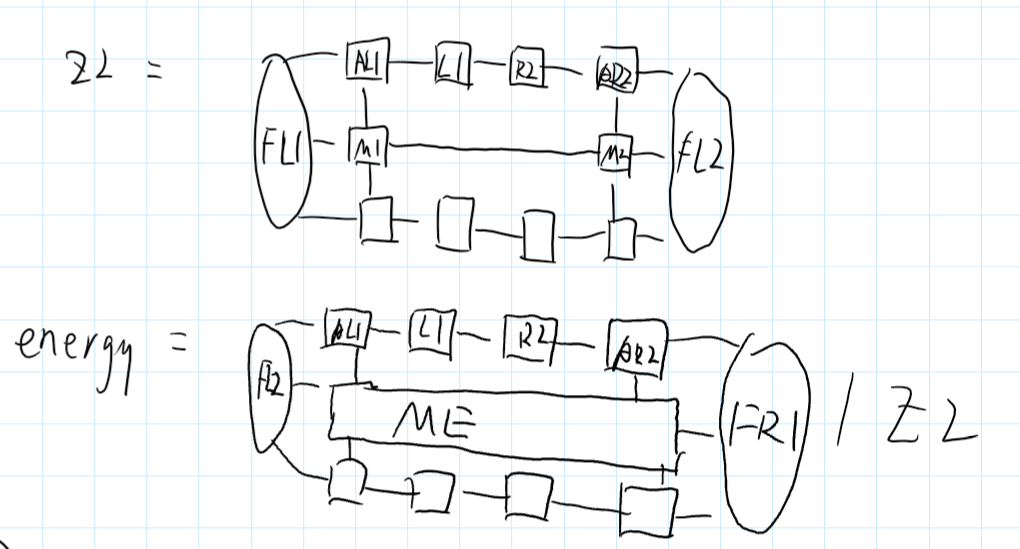 Z2 =
AL1 L1 R2 AR2
FL1 M1 M2 FL2
energy =
AL1 L1 R2 AR2
FL2 ME FR1 / Z2